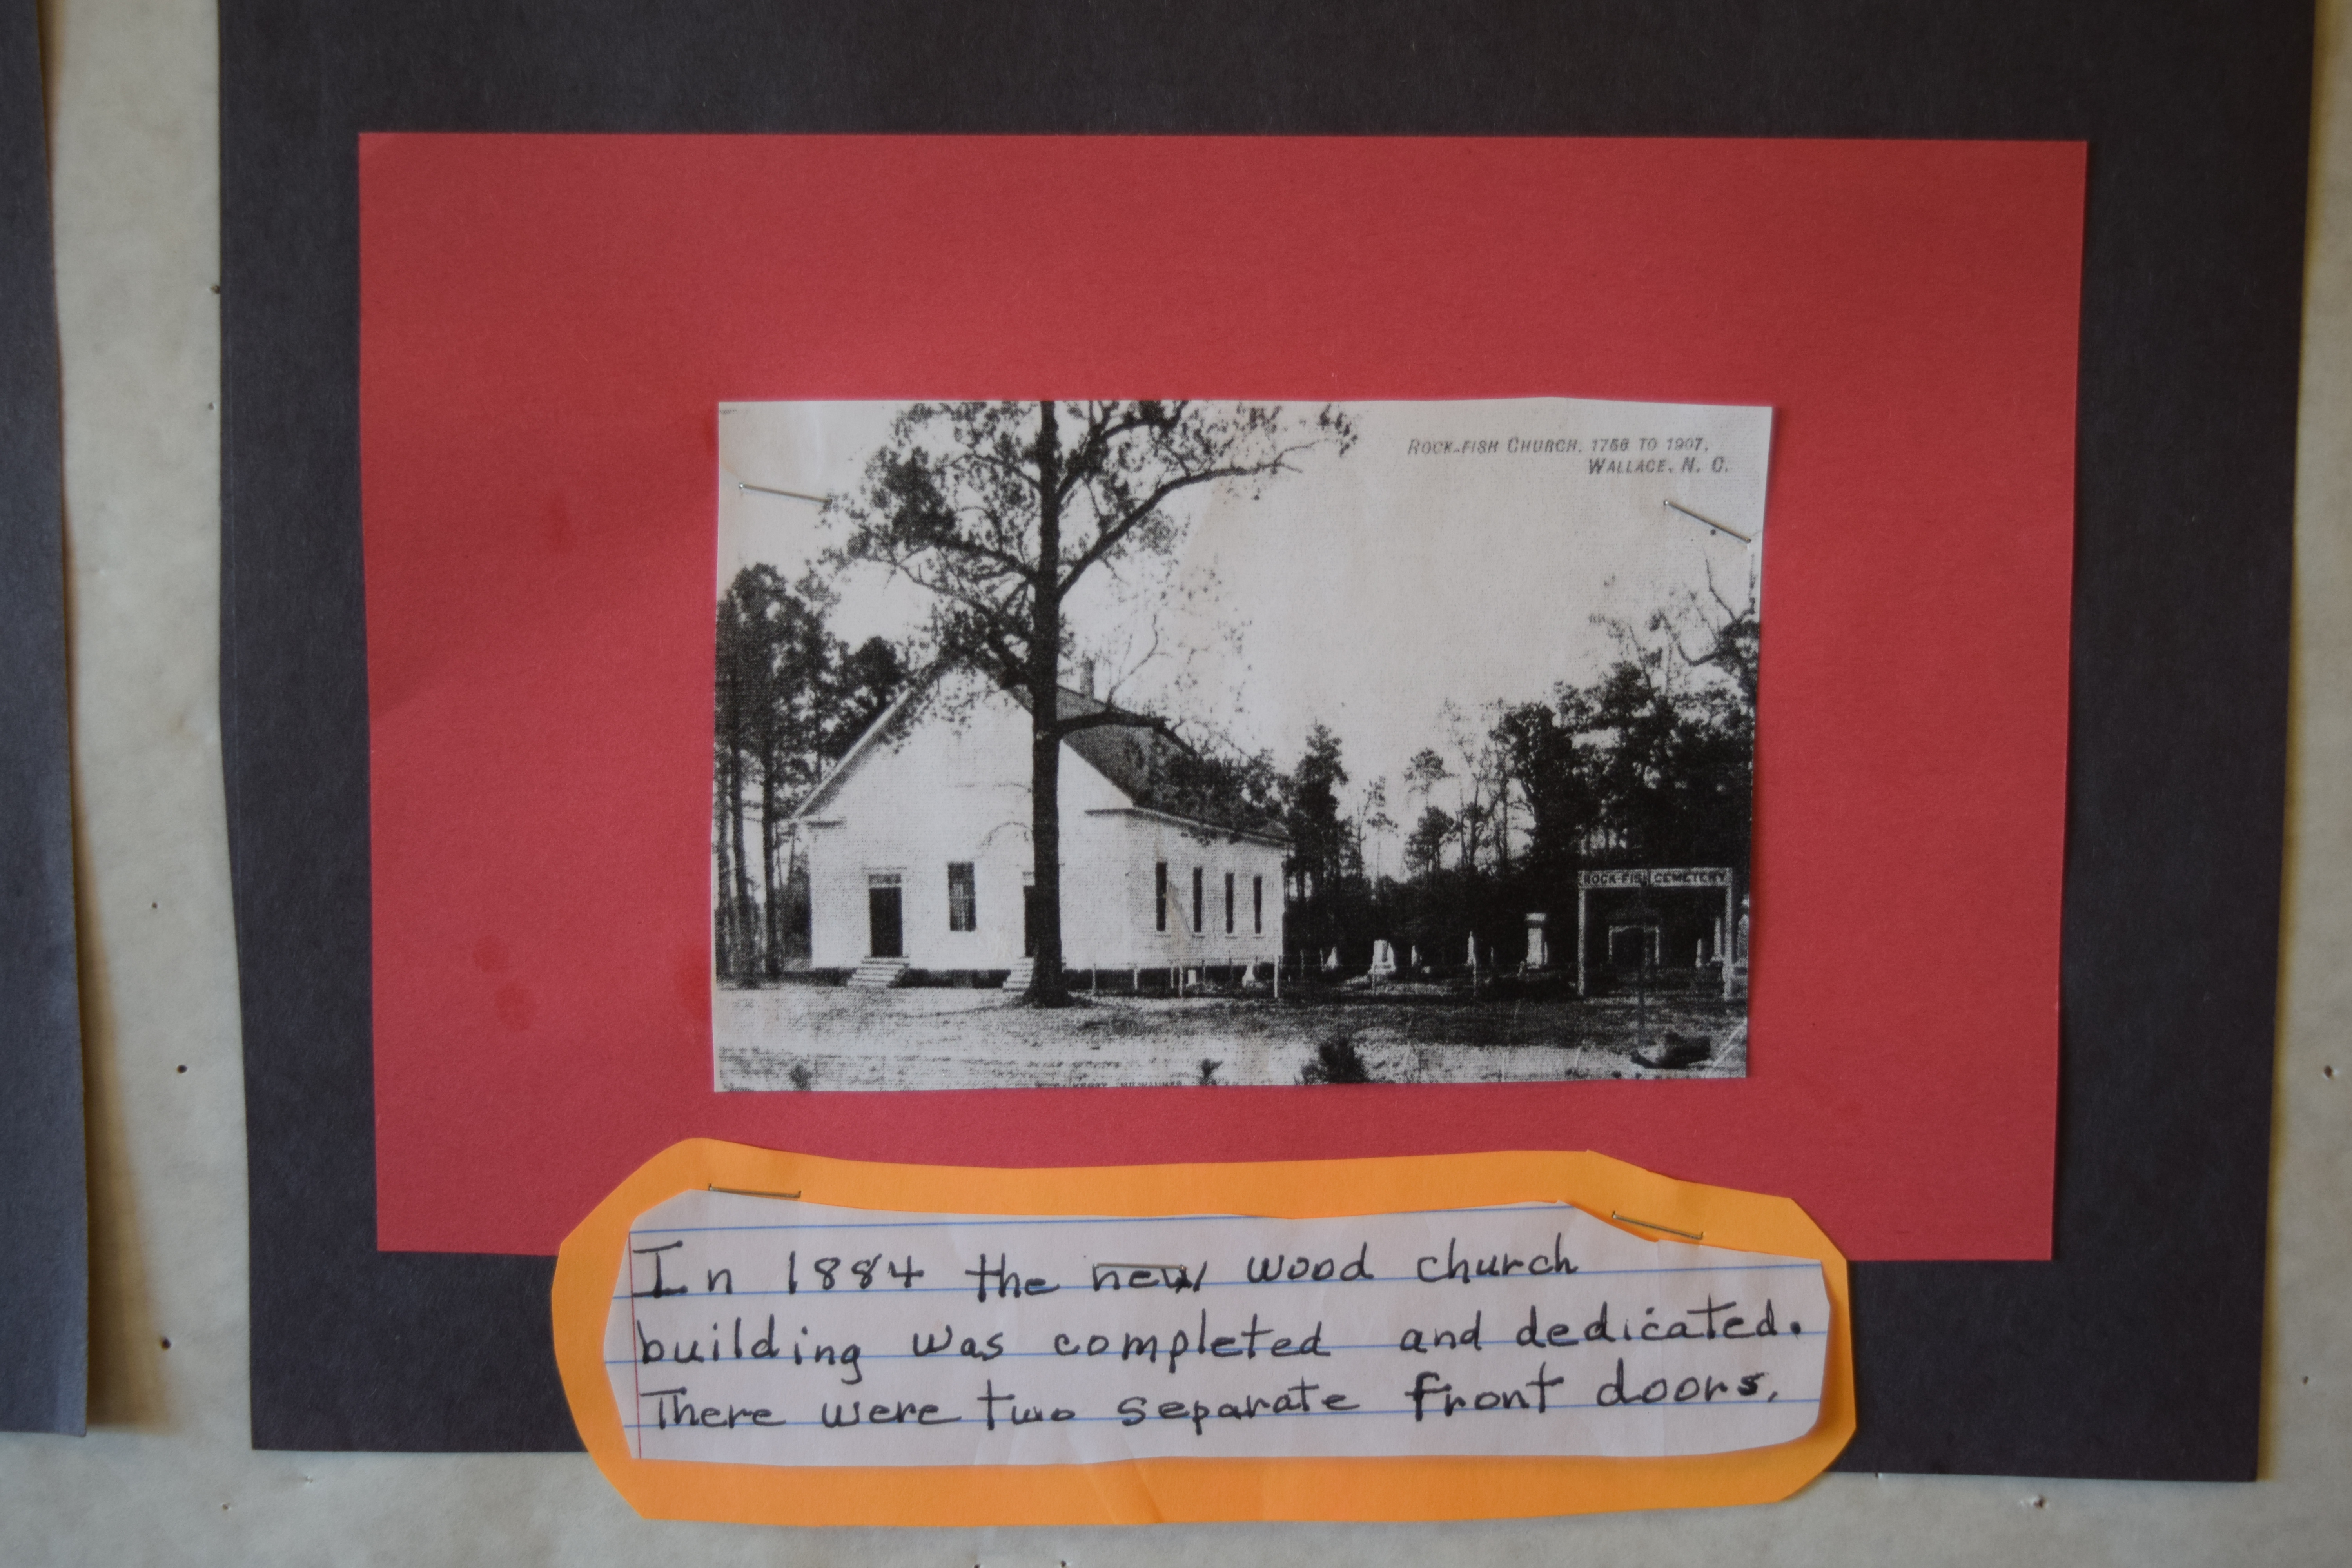 ROCK-FISH CHURCH, 1756 TO 1907,
WALLACE, N. C.
ROCK-FISH CEMETERY
In 1884 the new wood church
building was completed and dedicated.
There were two separate front doors.